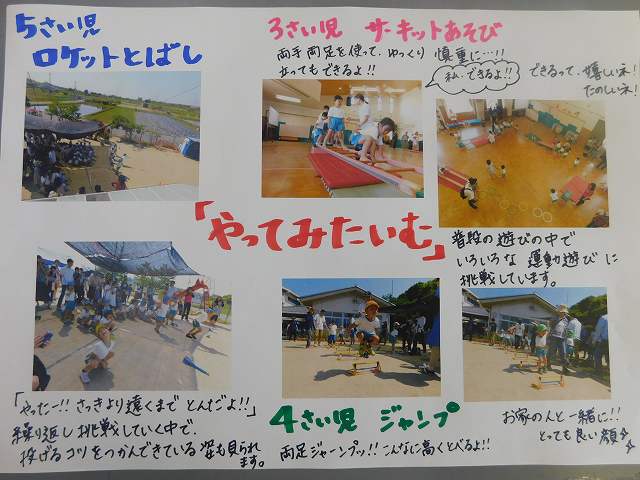 5さい児
ロケットとばし
3さい児 サーキットあそび
両手両足を使って、ゆっくり 慎重に…!!
立っても できるよ!!
私、できるよ!!
できるって、嬉しいネ!
たのしいネ!
「やってみたいむ」
普段の遊びの中で
いろいろな 運動遊びに
挑戦しています。
「やったー!! さっきより遠くまで とんだよ!!」
繰り返し 挑戦していく中で、
投げるコツをつかんできている 姿も見られ
ます。
4さい児 ジャンプ
両足ジャーンプッ!! こんなに高くとべるよ!!
お家の人と一緒に!!
とっても良い顔☆